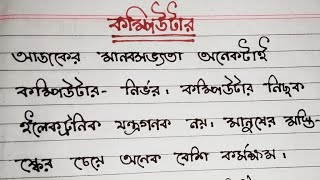 কম্পিউটার
আজকের মানবসভ্যতা অনেকটাই
কম্পিউটার- নির্ভর। কম্পিউটার নিছক
ইলেকট্রনিক যন্ত্রগনক নয়। মানুষের মস্তি-
ষ্কের চেয়ে অনেক বেশি কর্মক্ষম।